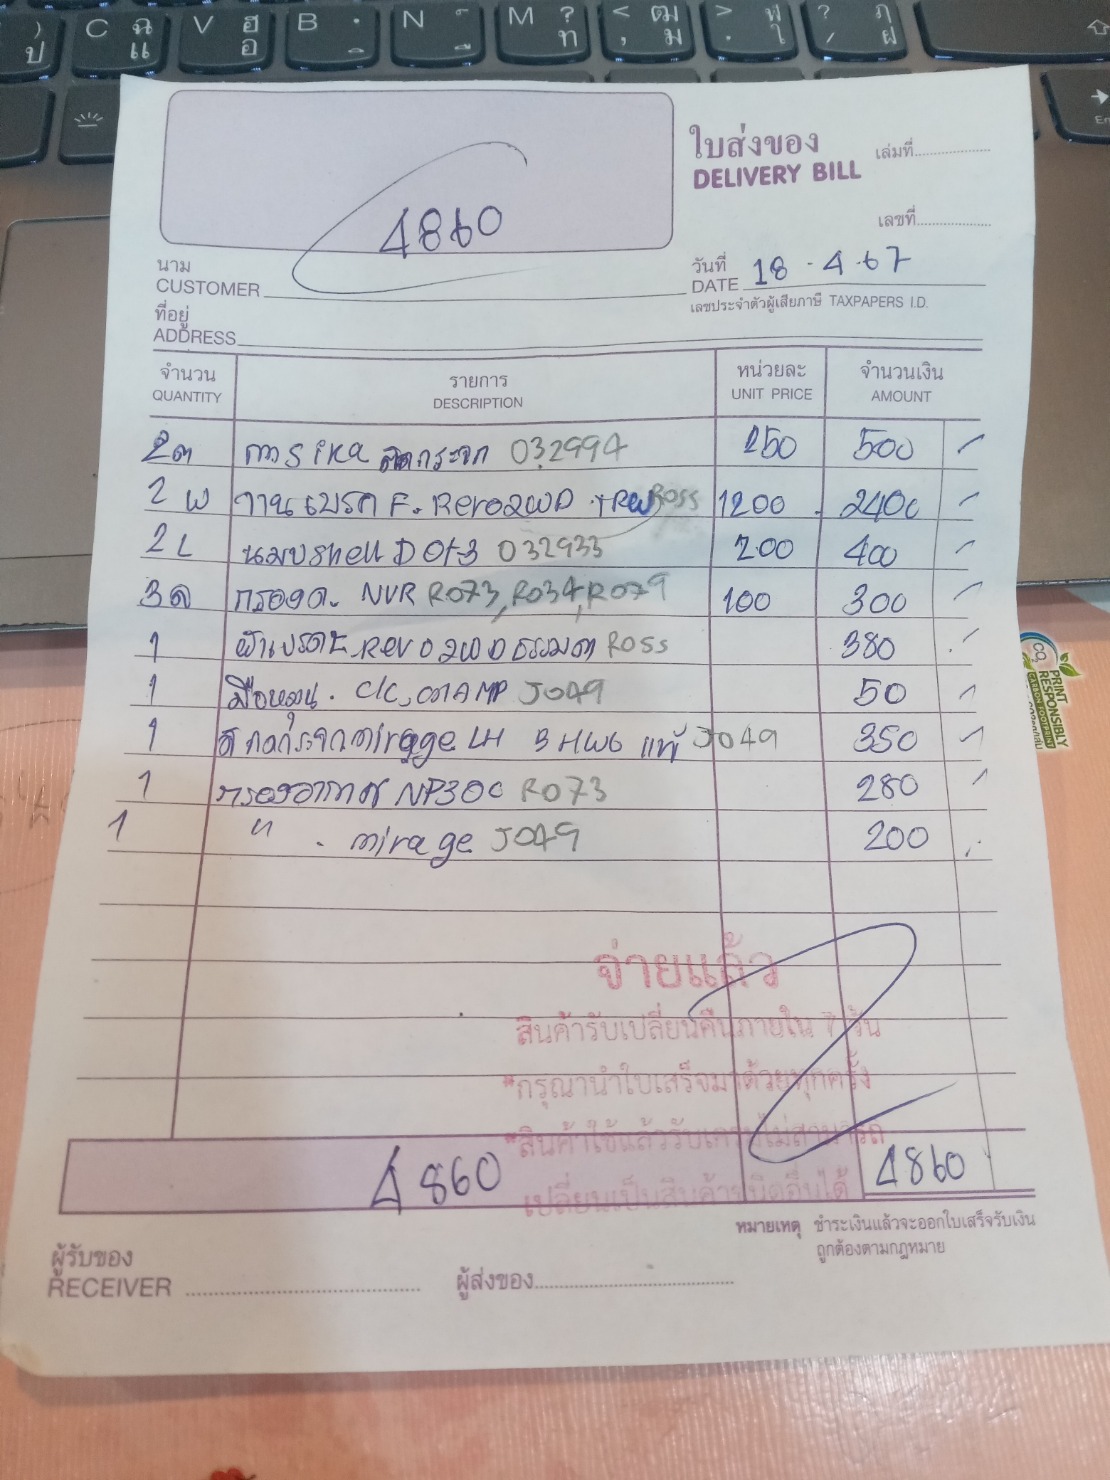 C ฉ แ V ฮ อ B N M ? ท < ฒ , ม > ฬ . ใ ? ฦ / ฝ
ใบส่งของ
DELIVERY BILL
เล่มที่
เลขที่
4860
นาม
CUSTOMER
วันที่
DATE 18-4-67
เลขประจำตัวผู้เสียภาษี TAXPAPERS I.D.
ที่อยู่
ADDRESS
จำนวน รายการ หน่วยละ จำนวนเงิน
QUANTITY DESCRIPTION UNIT PRICE AMOUNT
2 กาว sika ติดกระจก 032994 250 500
2 จานเบรค F. Revo2WD TRW Ross 1200 2400
2L Shell Dot3 032933 200 400
3 กรองด. NVR R073, R034, R079 100 300
1 ผ้าเบรค Revo 2WD ธรรมดา Ross 380
1 มือหมุน J049 50
1 mirage LH แท้ J049 350
1 กรองอากาศ NP300 R073 280
1 " mirage J049 200
จ่ายแล้ว
สินค้ารับเปลี่ยนคืนภายใน 7 วัน
*กรุณานำใบเสร็จมาด้วยทุกครั้ง
*สินค้าใช้แล้วรับเคลมไม่สามารถ
เปลี่ยนเป็นสินค้าชนิดอื่นได้
4860 4860
หมายเหตุ ชำระเงินแล้วจะออกใบเสร็จรับเงิน
ถูกต้องตามกฎหมาย
ผู้รับของ
RECEIVER ผู้ส่งของ
PRINT RESPONSIBLY